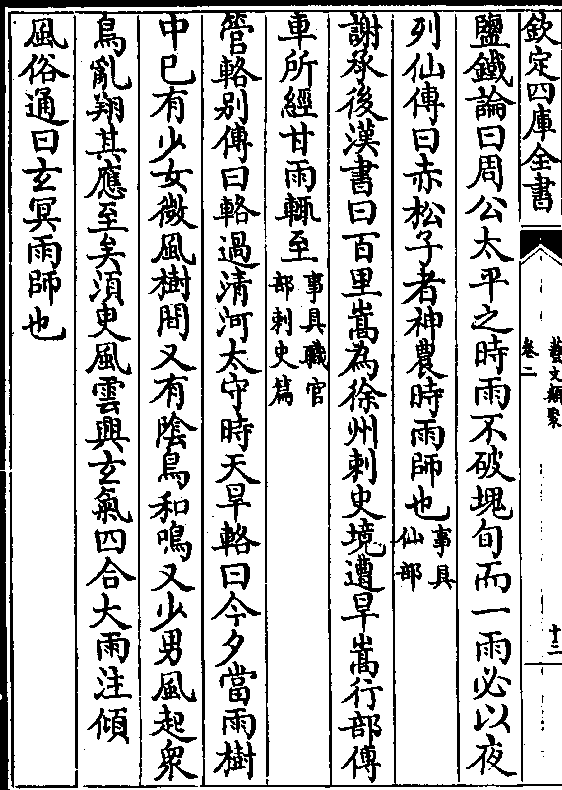 欽定四庫全書
藝文類聚
卷二
十三
鹽鐵論曰周公太平之時雨不破塊旬而一雨必以夜
列仙傳曰赤松子者神農時雨師也事具仙部
謝承後漢書曰百里嵩為徐州刺史境遭旱嵩行部傳
車所經甘雨輙至事具職官部刺史篇
管輅别傳曰輅過清河太守時天旱輅曰今夕當雨樹
中已有少女微風樹間又有陰鳥和鳴又少男風起衆
鳥亂翔其應至矣須史風雲興玄氣四合大雨注傾
風俗通曰玄冥雨師也